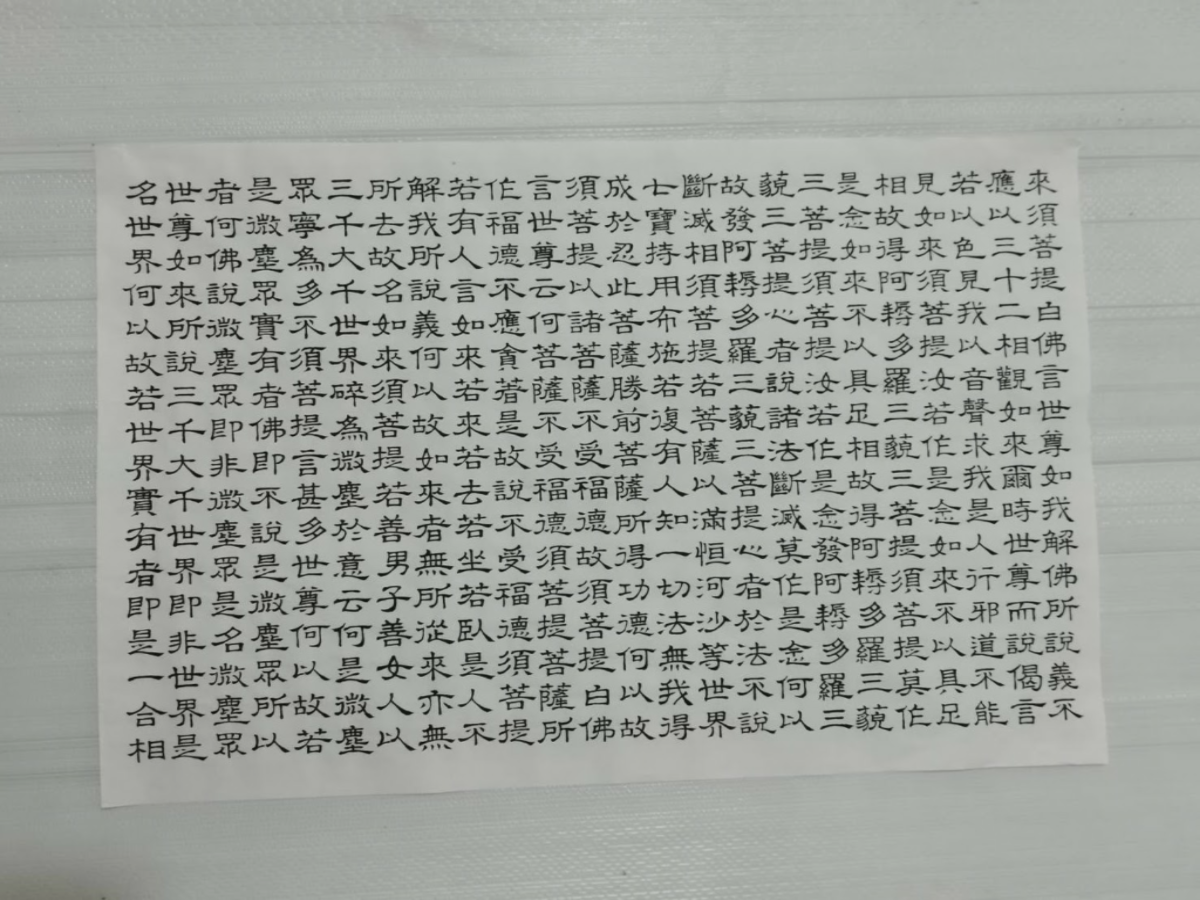 來須菩提白佛言世尊如我解佛所說義不
應以三十二相觀如來爾時世尊而說偈言
若以色見我以音聲求我是人行邪道不能
見如來須菩提汝若作是念如來不以具足
相故得阿耨多羅三藐三菩提須菩提莫作
是念如來不以具足相故得阿耨多羅三藐
三菩提須菩提汝若作是念發阿耨多羅三
藐三菩提心者說諸法斷滅莫作是念何以
故發阿耨多羅三藐三菩提心者於法不說
斷滅相須菩提若菩薩以滿恒河沙等世界
七寶持用布施若復有人知一切法無我得
成於忍此菩薩勝前菩薩所得功德何以故
須菩提以諸菩薩不受福德故須菩提白佛
言世尊云何菩薩不受福德須菩提菩薩所
作福德不應貪著是故說不受福德須菩提
若有人言如來若來若去若坐若臥是人不
解我所說義何以故如來者無所從來亦無
所去故名如來須菩提若善男子善女人以
三千大千世界碎為微塵於意云何是微塵
眾寧為多不須菩提言甚多世尊何以故若
是微塵眾實有者佛即不說是微塵眾所以
者何佛說微塵眾即非微塵眾是名微塵眾
世尊如來所說三千大千世界即非世界是
名世界何以故若世界實有者即是一合相